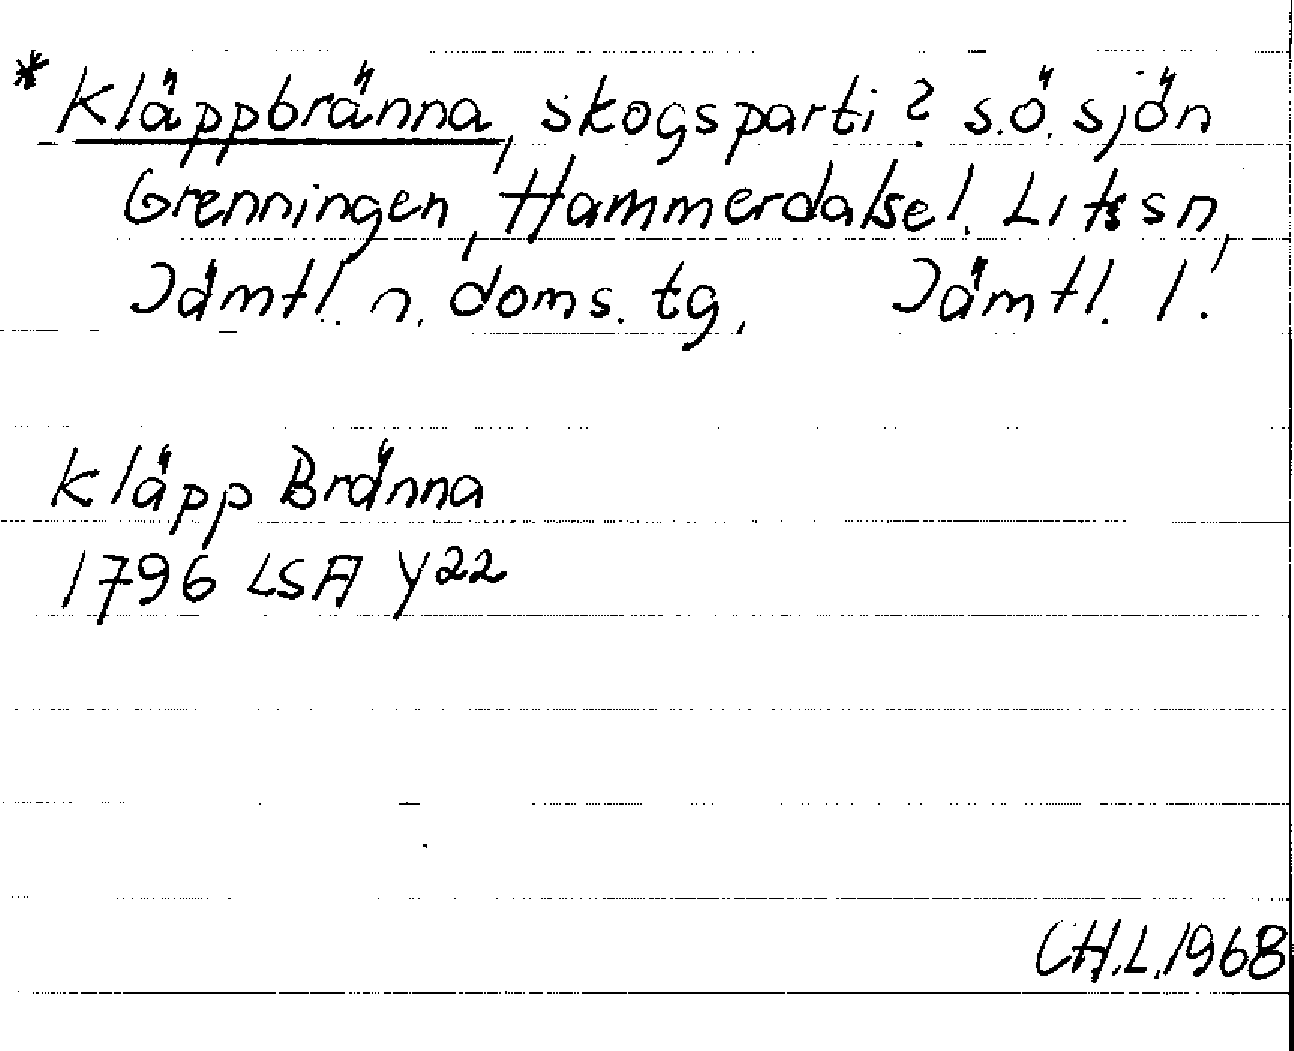 * Kläppbränna, skogsparti? s.ö. sjön
Grenningen, Hammerdals el. Lits sn,
Jämtl. n. doms. tg, Jämtl. l.
Kläpp Bränna
1796 LSA Y22
CH.L.1968